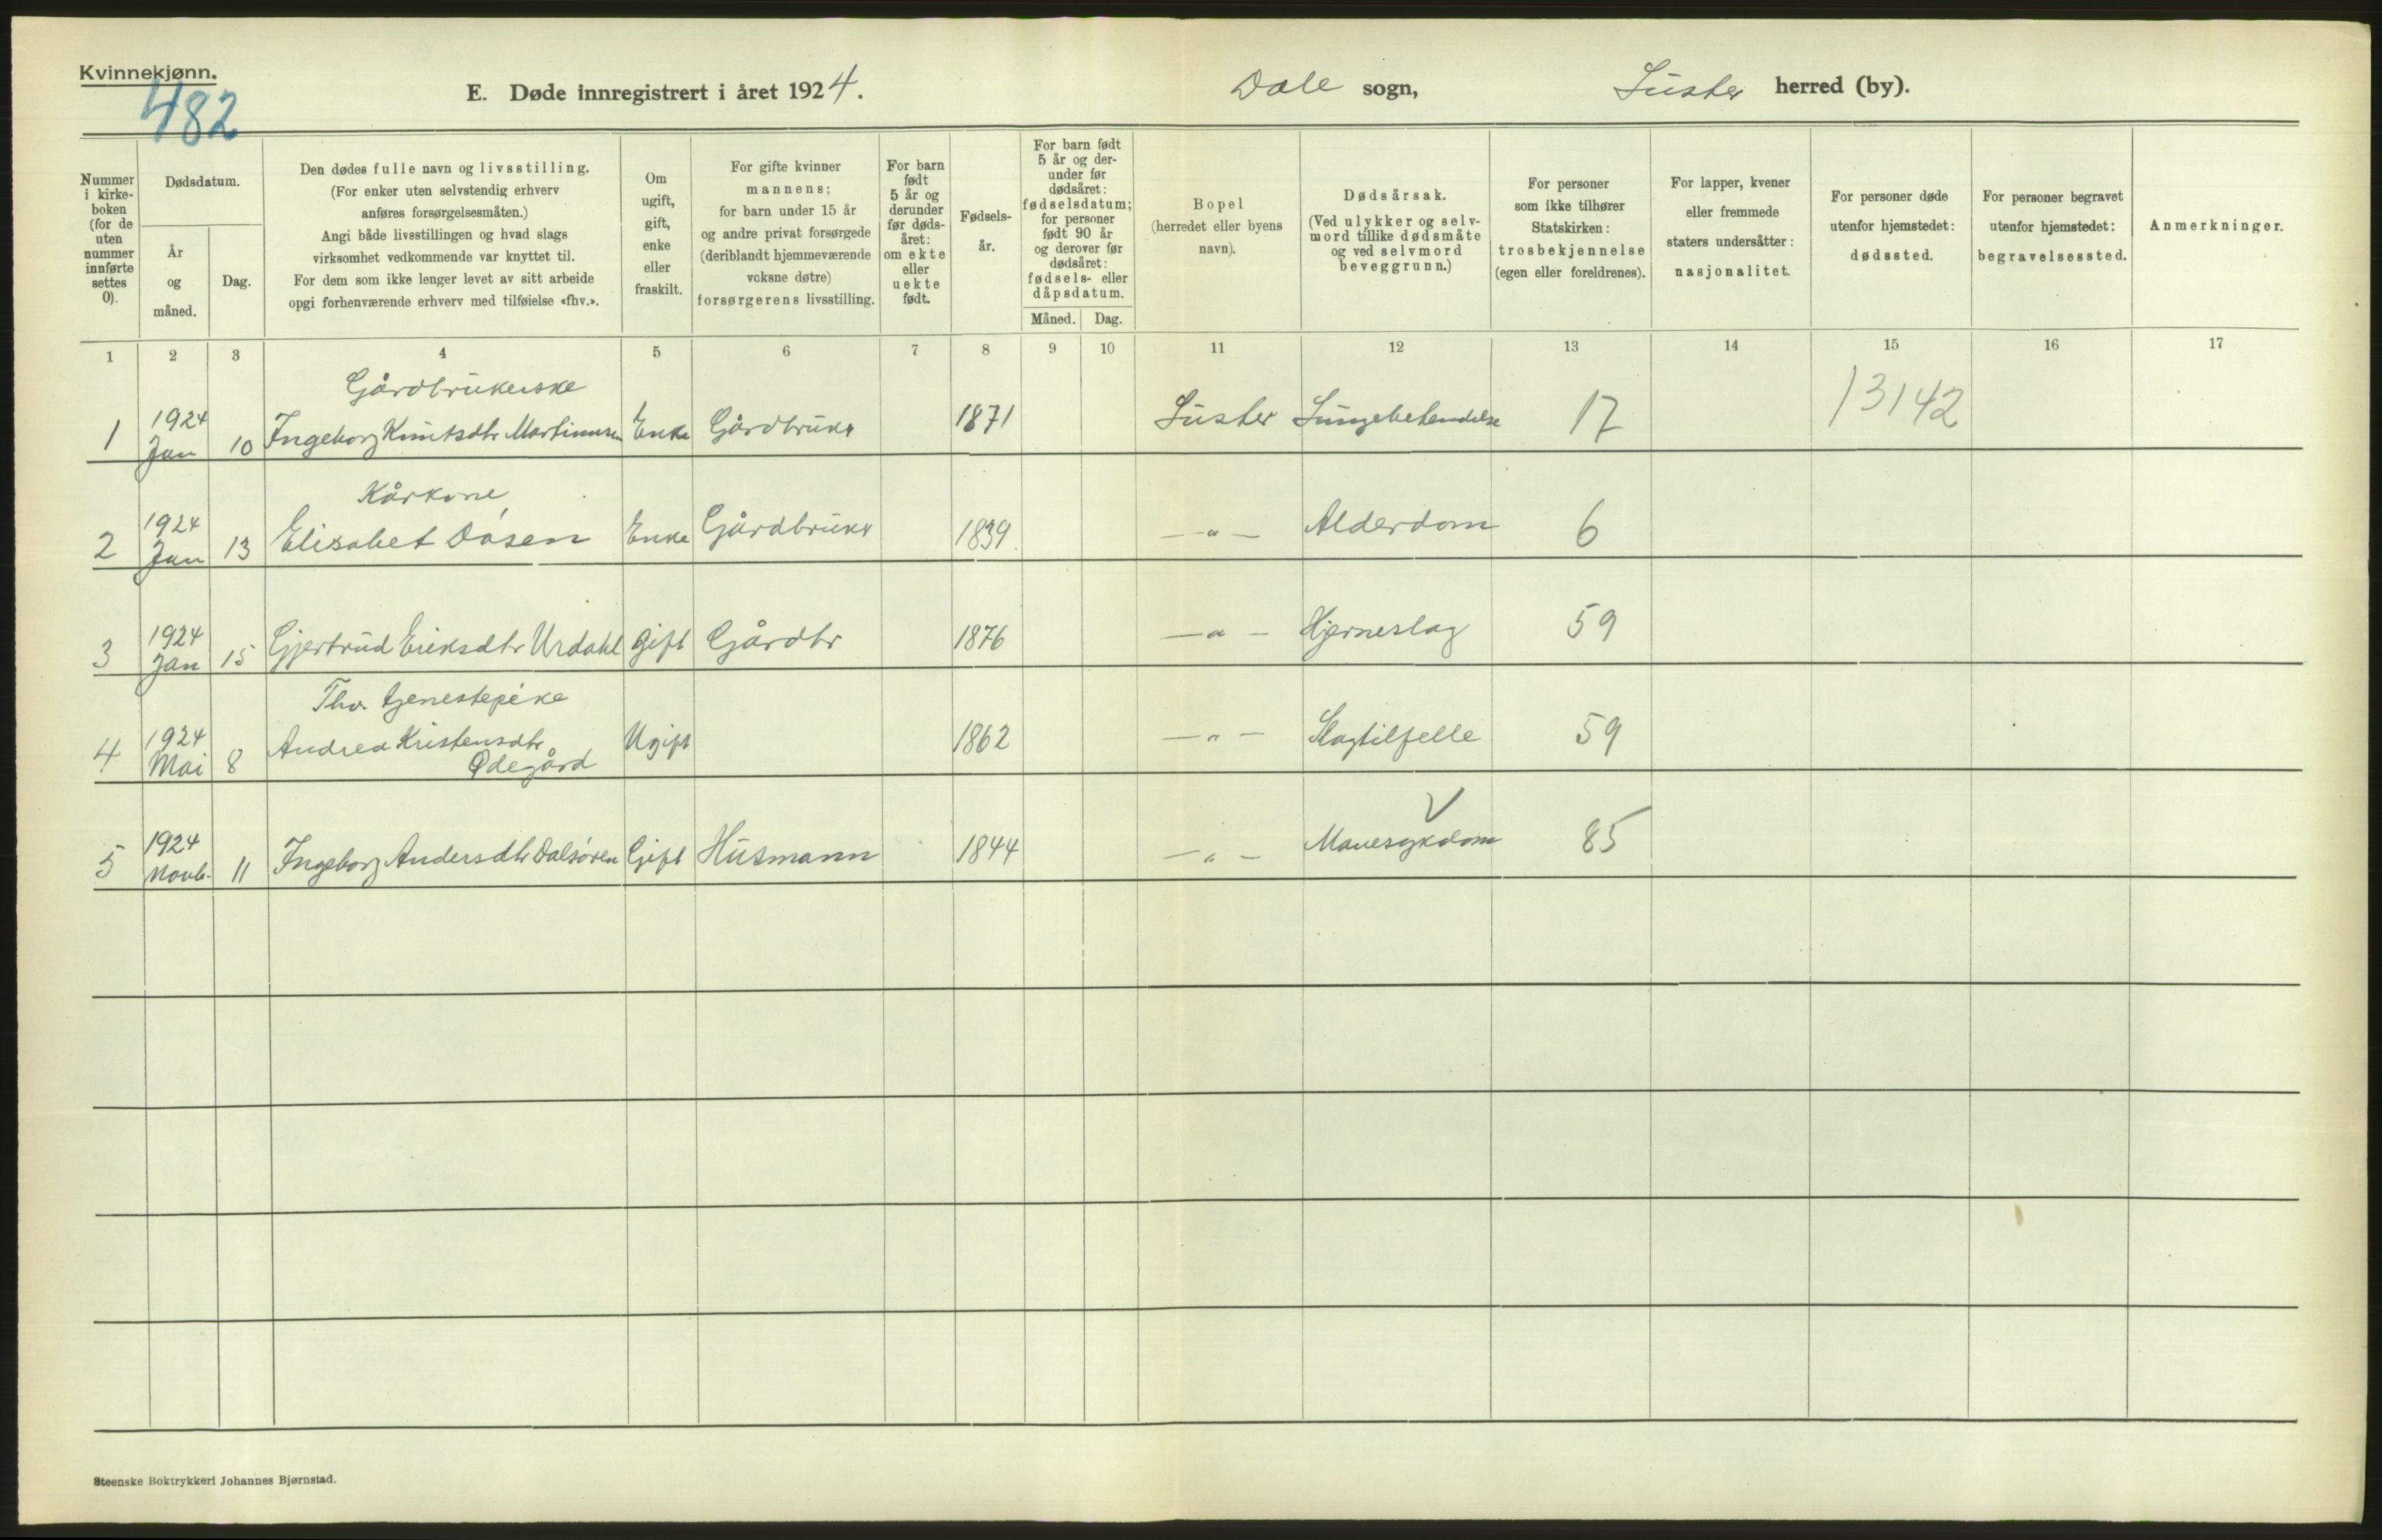 Kvinnekjønn.
482
E. Døde innregistrert i året 1924.
Dale sogn,
Luster herred (by).
Nummer i kirke-boken (for de uten nummer innførte settes 0).
Dødsdatum.
År og måned.
Dag.
Den dødes fulle navn og livsstilling.
(For enker uten selvstendig erhverv
anføres forsørgelsesmåten.)
Angi både livsstillingen og hvad slags
virksomhet vedkommende var knyttet til.
For dem som ikke lenger levet av sitt arbeide
opgi forhenværende erhverv med tilføielse «fhv.».
Om ugift, gift, enke eller fraskilt.
For gifte kvinner
mannens;
for barn under 15 år
og andre privat forsørgede
(deriblandt hjemmeværende
voksne døtre)
forsørgerens livsstilling.
For barn født 5 år og derunder før døds-året: om ekte eller uekte født.
Fødsels-år.
For barn født
5 år og der-
under før
dødsåret:
fødselsdatum;
for personer
født 90 år
og derover før
dødsåret:
fødsels- eller
dåpsdatum.
Måned. Dag.
Bopel
(herredet eller byens
navn).
Dødsårsak.
(Ved ulykker og selv-
mord tillike dødsmåte
og ved selvmord
beveggrunn.)
For personer
som ikke tilhører
Statskirken:
trosbekjennelse
(egen eller foreldrenes).
For lapper, kvener
eller fremmede
staters undersåtter:
nasjonalitet.
For personer døde
utenfor hjemstedet:
dødssted.
For personer begravet
utenfor hjemstedet:
begravelsessted.
Anmerkninger.
1 2 3 4 5 6 7 8 9 10 11 12 13 14 15 16 17
Gårdbrukerske
1 1924 Jan 10 Ingeborg Knutsdtr Martinusen Enke Gårdbruker 1871 Luster Lungebetendelse 17 13142
Kårkone,
2 1924 Jan 13 Elisabet Døsen Enke Gårdbruker 1839 —"— Alderdom 6
3 1924 Jan 15 Gjertrud Eriksdtr Urdahl gift Gårdbr 1876 —"— Hjerneslag 59
Fhv. tjenestepike
4 1924 Mai 8 Andrea Kristensdtr Ødegård Ugift 1862 —"— Slagtilfelle 59
5 1924 Novb. 11 Ingeborg Andersdtr Dalsøren Gift Husmann 1844 —"— Mavesykdom 85
Steenske Boktrykkeri Johannes Bjørnstad.